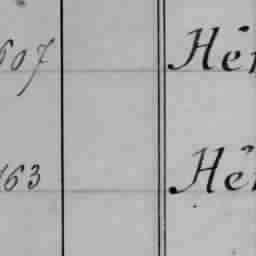 607 Her
163 Her